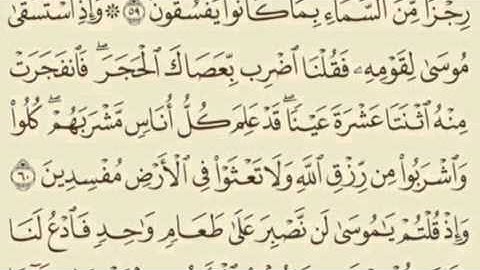 رِجْزًا مِّنَ السَّمَاءِ بِمَا كَانُوا۟ يَفْسُقُونَ ۝٥٩ ۞ وَإِذِ اسْتَسْقَىٰ
مُوسَىٰ لِقَوْمِهِۦ فَقُلْنَا اضْرِب بِّعَصَاكَ الْحَجَرَ ۖ فَانفَجَرَتْ
مِنْهُ اثْنَتَا عَشْرَةَ عَيْنًا ۖ قَدْ عَلِمَ كُلُّ أُنَاسٍ مَّشْرَبَهُمْ ۖ كُلُوا۟
وَاشْرَبُوا۟ مِن رِّزْقِ اللَّهِ وَلَا تَعْثَوْا۟ فِي الْأَرْضِ مُفْسِدِينَ ۝٦٠
وَإِذْ قُلْتُمْ يَٰمُوسَىٰ لَن نَّصْبِرَ عَلَىٰ طَعَامٍ وَٰحِدٍ فَادْعُ لَنَا